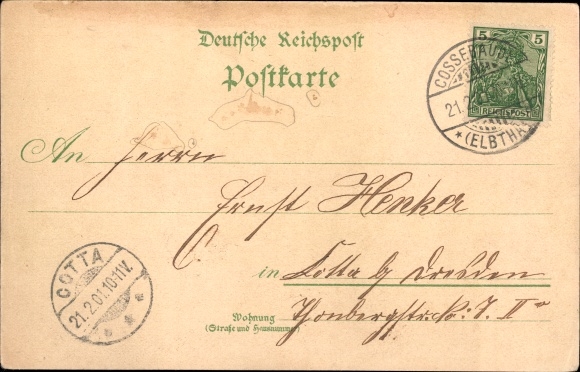 Deutsche Reichspost
Postkarte
5 5
REICHSPOST
COSSEBAUDE
21.2
* (ELBTHAL
An Herrn
Ernst Henker
in Cotta b/ Dresden
COTTA
21.2.01.10-11V.
* *
Wohnung
(Straße und Hausnummer)
II